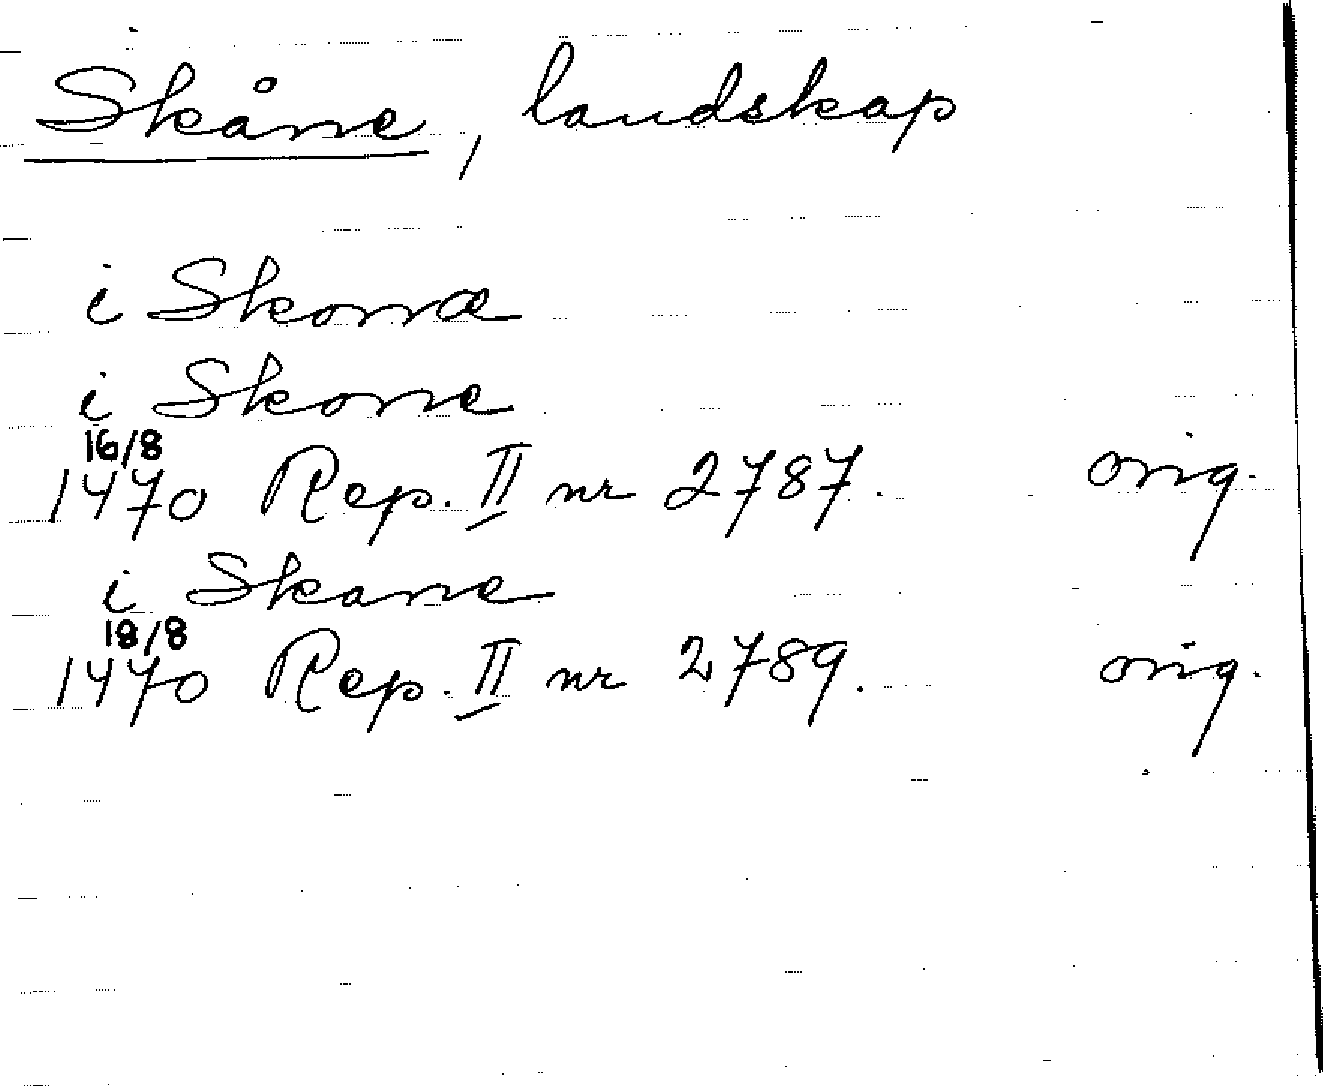 Skåne, landskap
i Skonæ
i Skone
16/8
1470 Rep. II nr 2787. orig.
i Skane
18/8
1470 Rep. II nr 2789. orig.